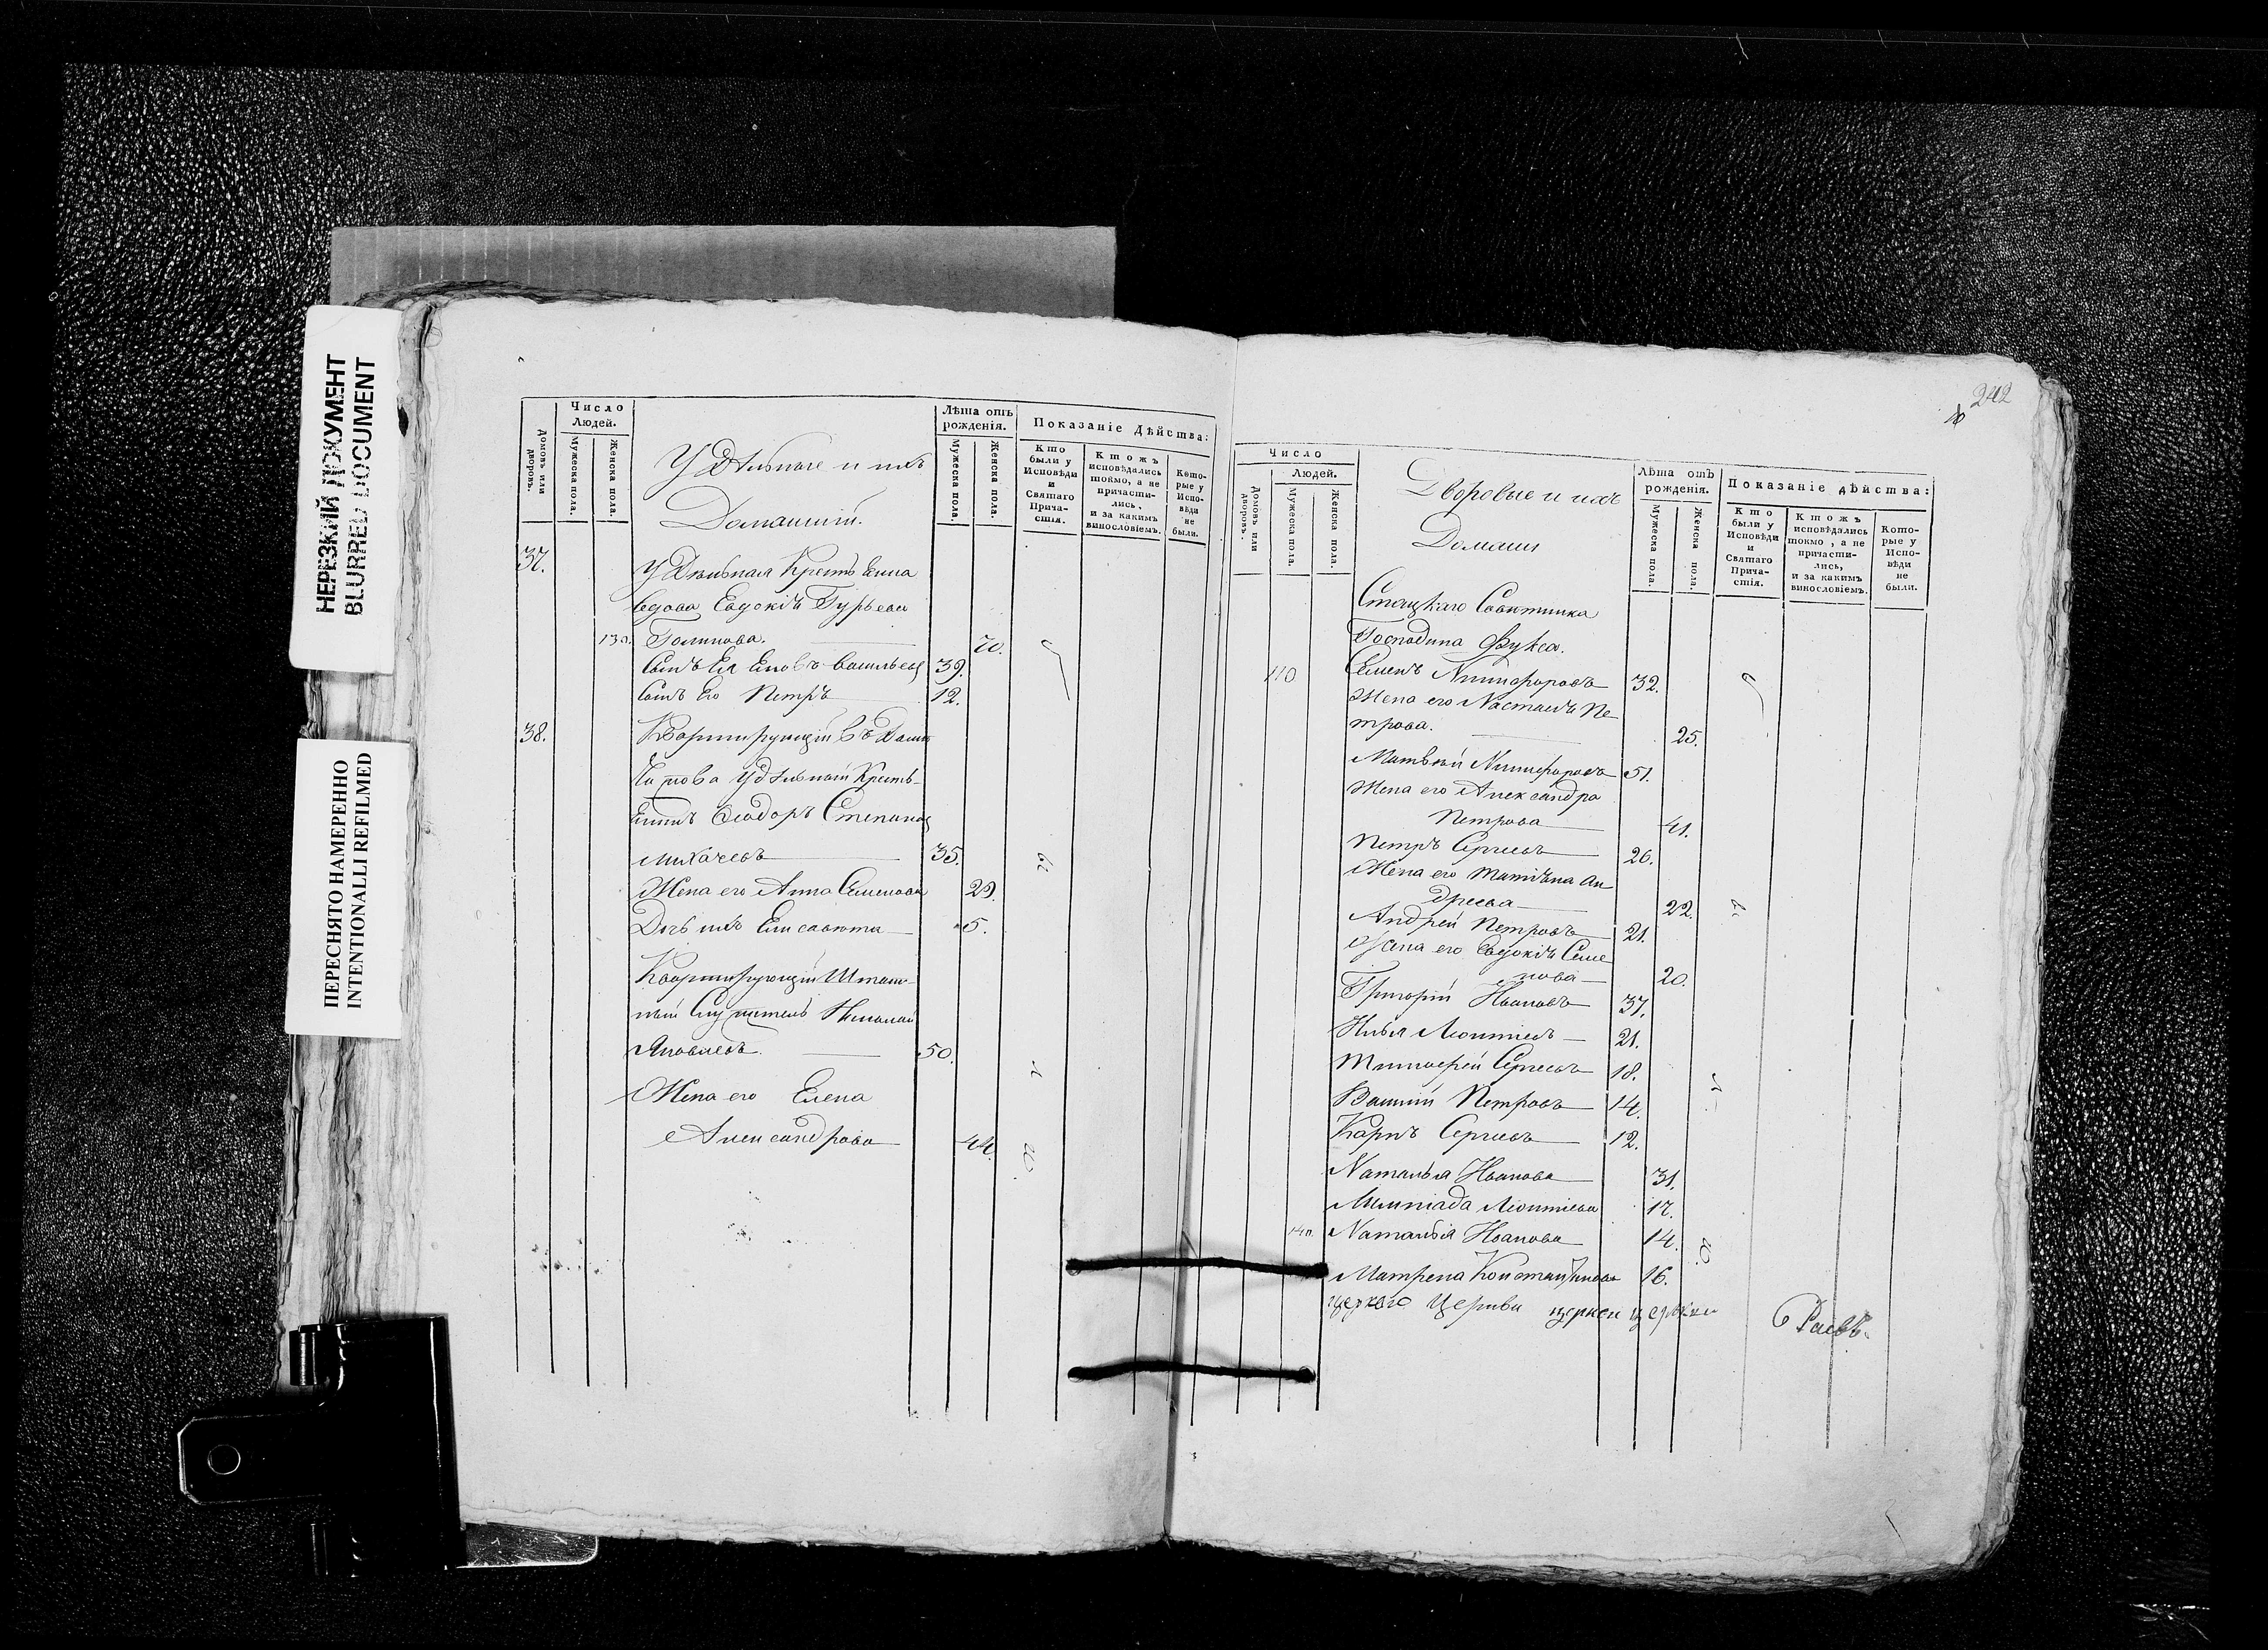 НЕРЕЗКИЙ ДОКУМЕНТ
BLURRED DOCUMENT
ПЕРЕСНЯТО НАМЕРЕННО
INTENTIONALLI REFILMED
Домовъ или дворовъ.
Число Людей.
Мужеска пола.
Женска пола.
Удѣльные и ихъ
Домашніи.
Лѣта отъ рожденія.
Мужеска пола.
Женска пола.
Показаніе Дѣйства:
Кто были у Исповѣди и Святаго Причастія.
Ктожъ исповѣдались токмо, а не причастились, и за какимъ винословіемъ.
Которые у Исповѣди не были.
37. Удѣльная Крестьянка
вдова Евдокія Гурьева
130. 70.
Сынъ Ея Васильевъ 39.
Сынъ Его Петръ 12.
38. Квартирующій въ
Удѣльный Кресть-
янинъ Ѳеодоръ Степановъ
Михачевъ 35.
Жена его Анна Семенова 29.
Дочь ихъ Елисавета 5.
Квартирующій Штат-
ный Служитель Николай
Яковлевъ. 50.
Жена его Елена
Александрова 44.
242
Число
Домовъ или дворовъ.
Людей.
Мужеска пола.
Женска пола.
Дворовые и ихъ
Домашн
Лѣта отъ рожденія.
Мужеска пола.
Женска пола.
Показаніе дѣйства:
Кто были у Исповѣди и Святаго Причастія.
Ктожъ исповѣдались токмо, а не причастились, и за какимъ винословіемъ.
Которые у Исповѣди не были.
Статскаго Совѣтника
Господина Фукса.
110 Семенъ Никифоровъ 32.
Жена его Настасья Пе-
трова. 25.
Матвѣй Никифоровъ 51.
Жена его Александра
Петрова 41.
Петръ Сергеевъ 26.
Жена его Татіяна Ан
дреева 22.
Андрей Петровъ 21.
Жена его Евдокія Семе
нова 20.
Григорій Ивановъ 37.
Илья Леонтіевъ 21.
Тимофей Сергеевъ 18.
Василій Петровъ 14.
Карпъ Сергеевъ 12.
Наталья Иванова 31.
Леонтіева 17.
140. Наталья Иванова 14.
Матрена Константинова 16.
церкви